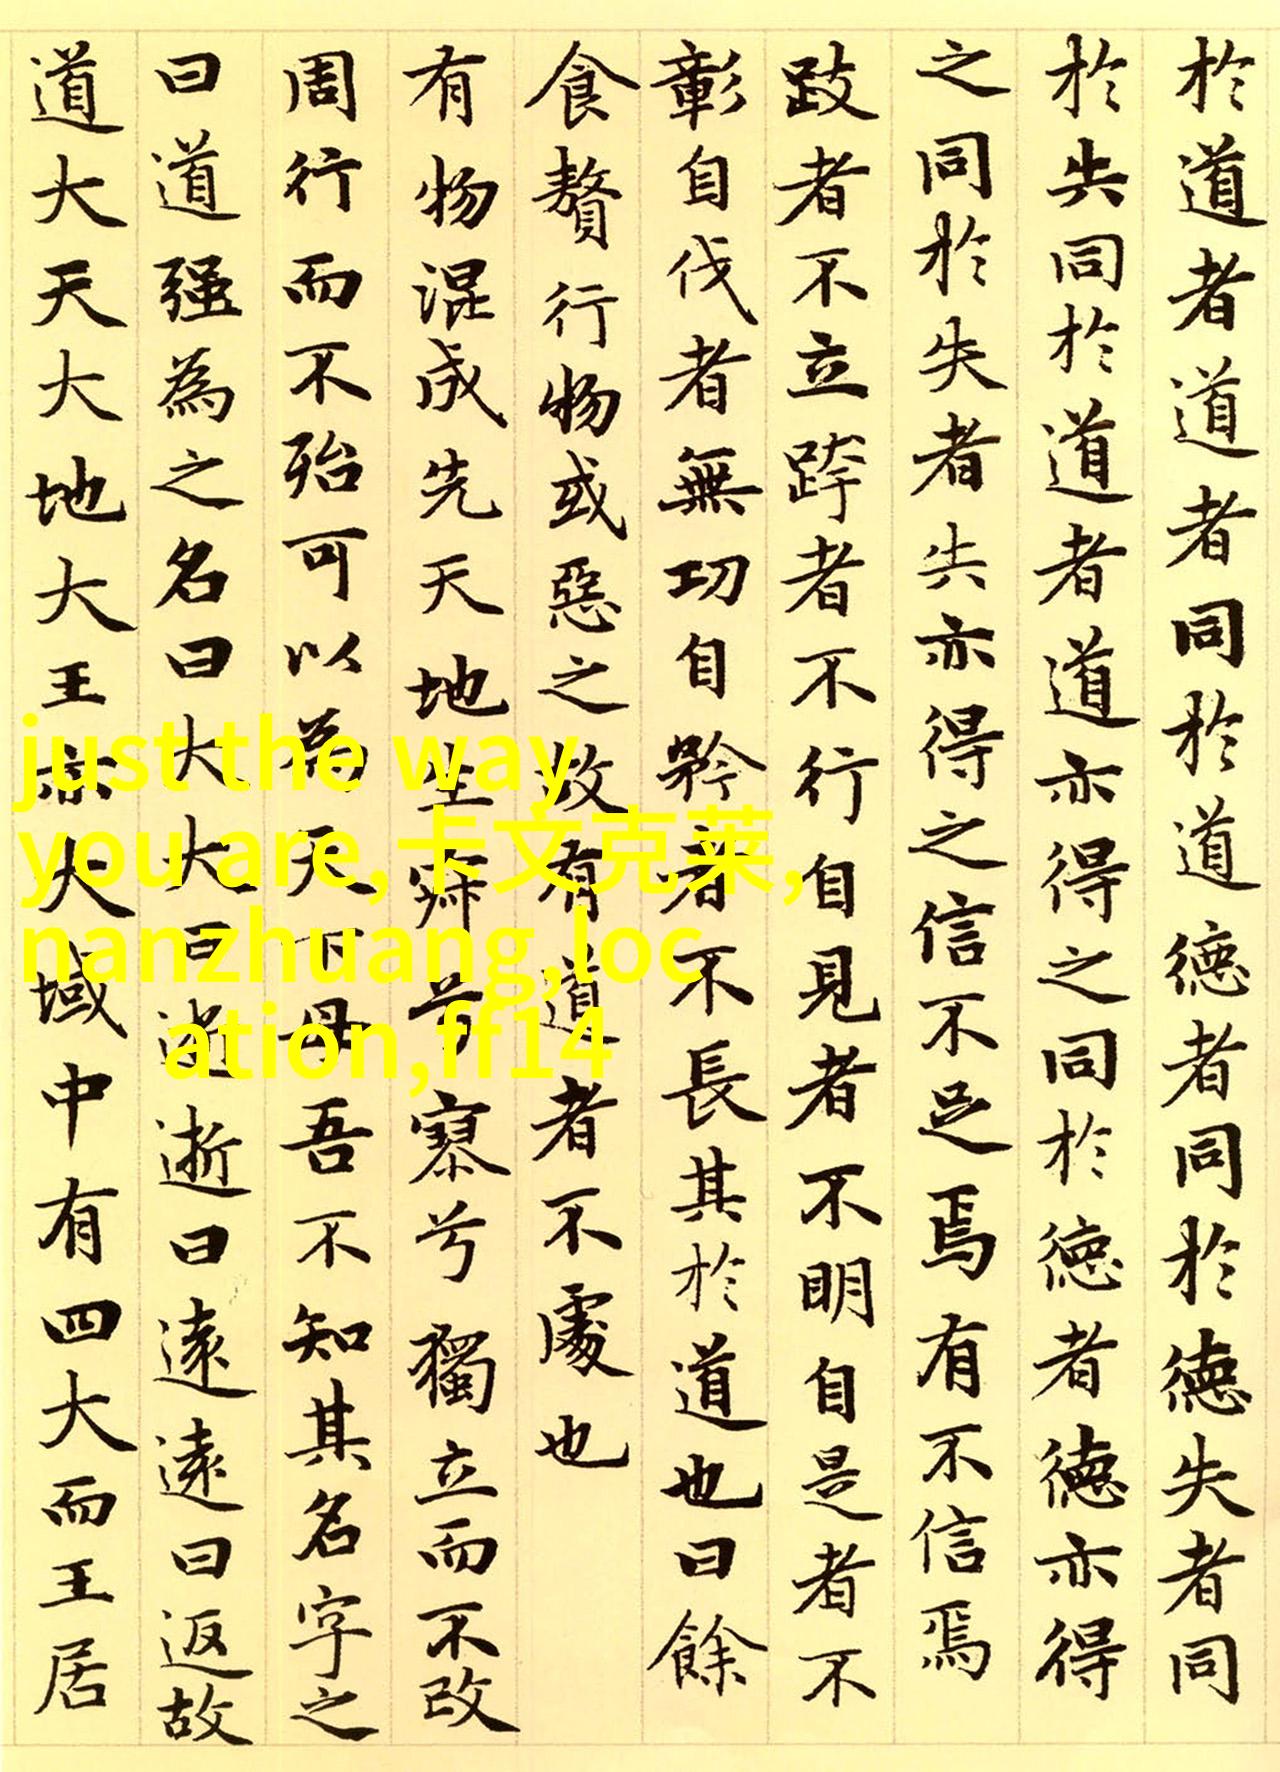 於道者道者同於道德者同於德失者同
於失同於道者道亦得之同於德者德亦得
之同於失者失亦得之信不足焉有不信焉
跂者不立跨者不行自見者不明自是者不
彰自伐者無功自矜者不長其於道也曰餘
食贅行物或惡之故有道者不處也
有物混成先天地生寂兮寥兮獨立而不改
周行而不殆可以為天下母吾不知其名字之
曰道强為之名曰大大曰逝逝曰遠遠曰返故
道大天大地大王亦大域中有四大而王居
just the way
you are,卡文克莱,
nanzhuang,loc
ation,ff14